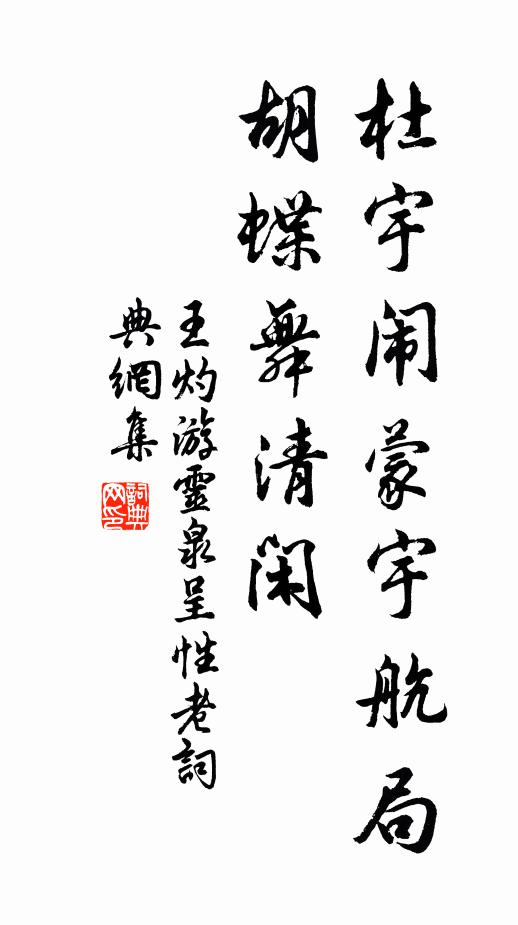 杜宇闹蒙宇航局
胡蝶舞清闲
王灼游靈泉呈性老詞
典網集
詞典
网印